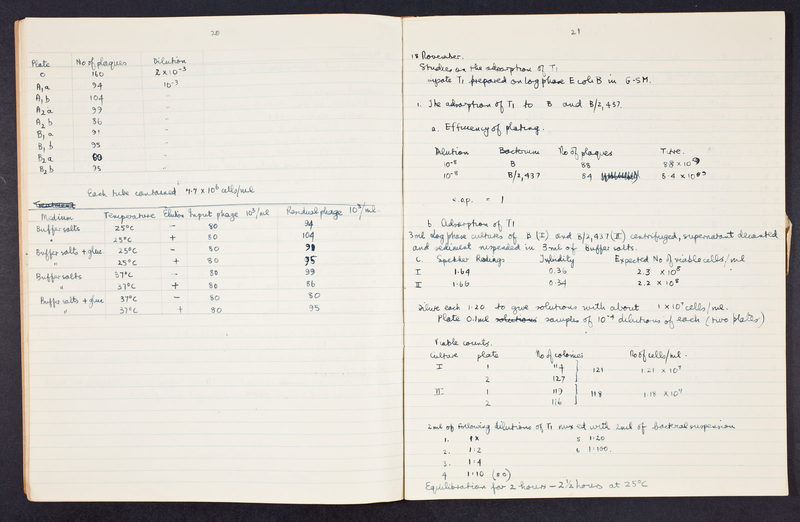 20
Plate No of plaques Dilution
0 160 2 x 10⁻³
A₁a 94 10⁻³
A₁b 104 "
A₂a 99 "
A₂b 86 "
B₁a 91 "
B₁b 95 "
B₂a 80 "
B₂b 75 "
Each tube contained 7.7 x 10⁶ cells/ml
Treatment
Medium Temperature Elution Input phage 10³/ml Residual phage 10³/ml.
Buffer salts 25°C - 80 94
" 25°C + 80 104
Buffer salts + glue 25°C - 80 91
" 25°C + 80 75
Buffer salts 37°C - 80 99
" 37°C + 80 86
Buffer salts + glue 37°C - 80 80
" 37°C + 80 95
21
18 November.
Studies on the adsorption of T1
T1 prepared on log phase E coli B in G-SM.
1. The adsorption of T1 to B and B/2,437.
a. Efficiency of plating.
Dilution Bacterium No of plaques
10⁻⁸ B 88 8.8 x 10⁹
10⁻⁸ B/2,437 84 8.4 x 10⁹
e.o.p. = 1
b. Adsorption of T1
3ml log phase cultures of B (I) and B/2,437 (II) centrifuged, supernatant decanted
and sediment suspended in 3ml of buffer salts.
c. Spekker Readings Turbidity Expected No of viable cells/ml
I 1.64 0.36 2.3 x 10⁸
II 1.66 0.34 2.2 x 10⁸
Dilute each 1:20 to give solutions with about 1 x 10⁷ cells/ml.
Plate 0.1ml solutions samples of 10⁻⁴ dilutions of each (two plates)
Viable counts.
Culture plate No of colonies No of cells/ml.
I 1 114 121 1.21 x 10⁷
2 127
II 1 119 118 1.18 x 10⁷
2 116
2ml of following dilutions of T1 mixed with 2ml of bacterial suspension
1. 1x 5 1:20
2. 1:2 6 1:100.
3. 1:4
4 1:10
Equilibration for 2 hours - 2½ hours at 25°C